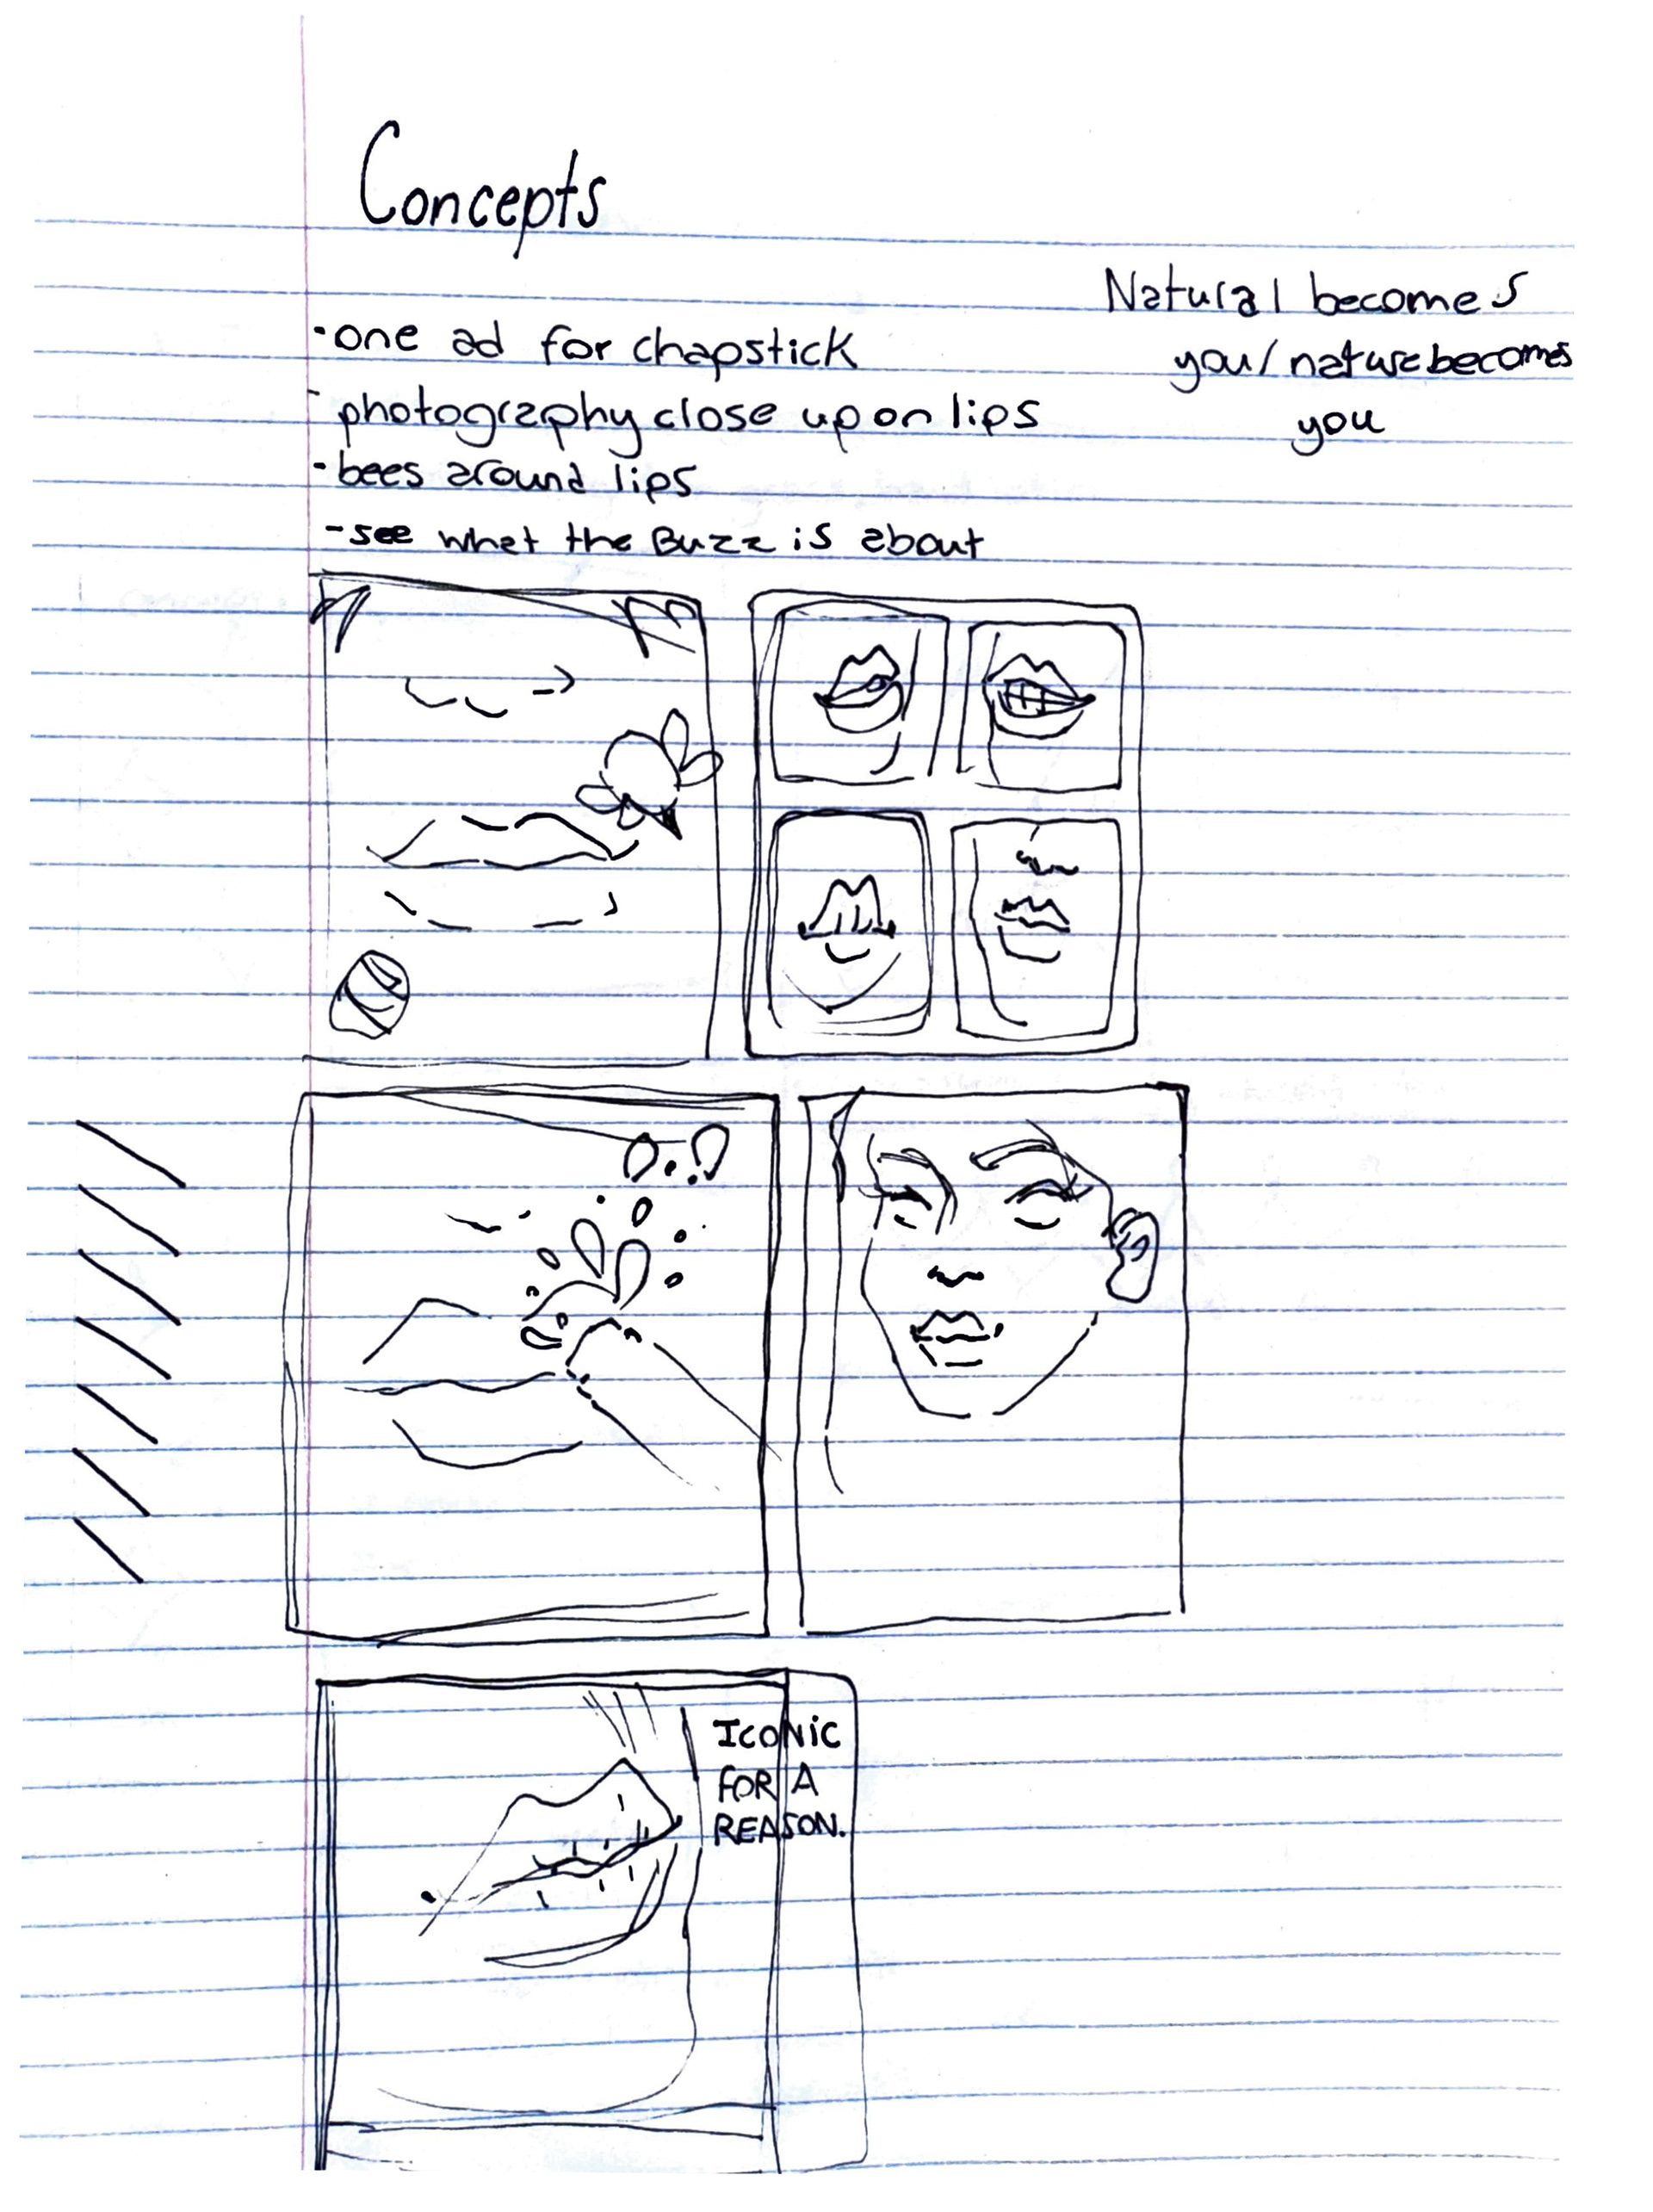 Concepts
Natural becomes
you/nature becomes
you
·one ad for chapstick
-photography close up on lips
-bees around lips
-see what the Buzz is about
ICONiC
FOR A
REASON.